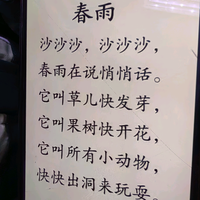 春雨
沙沙沙，沙沙沙，
春雨在说悄悄话。
它叫草儿快发芽，
它叫果树快开花，
它叫所有小动物，
快快出洞来玩耍。